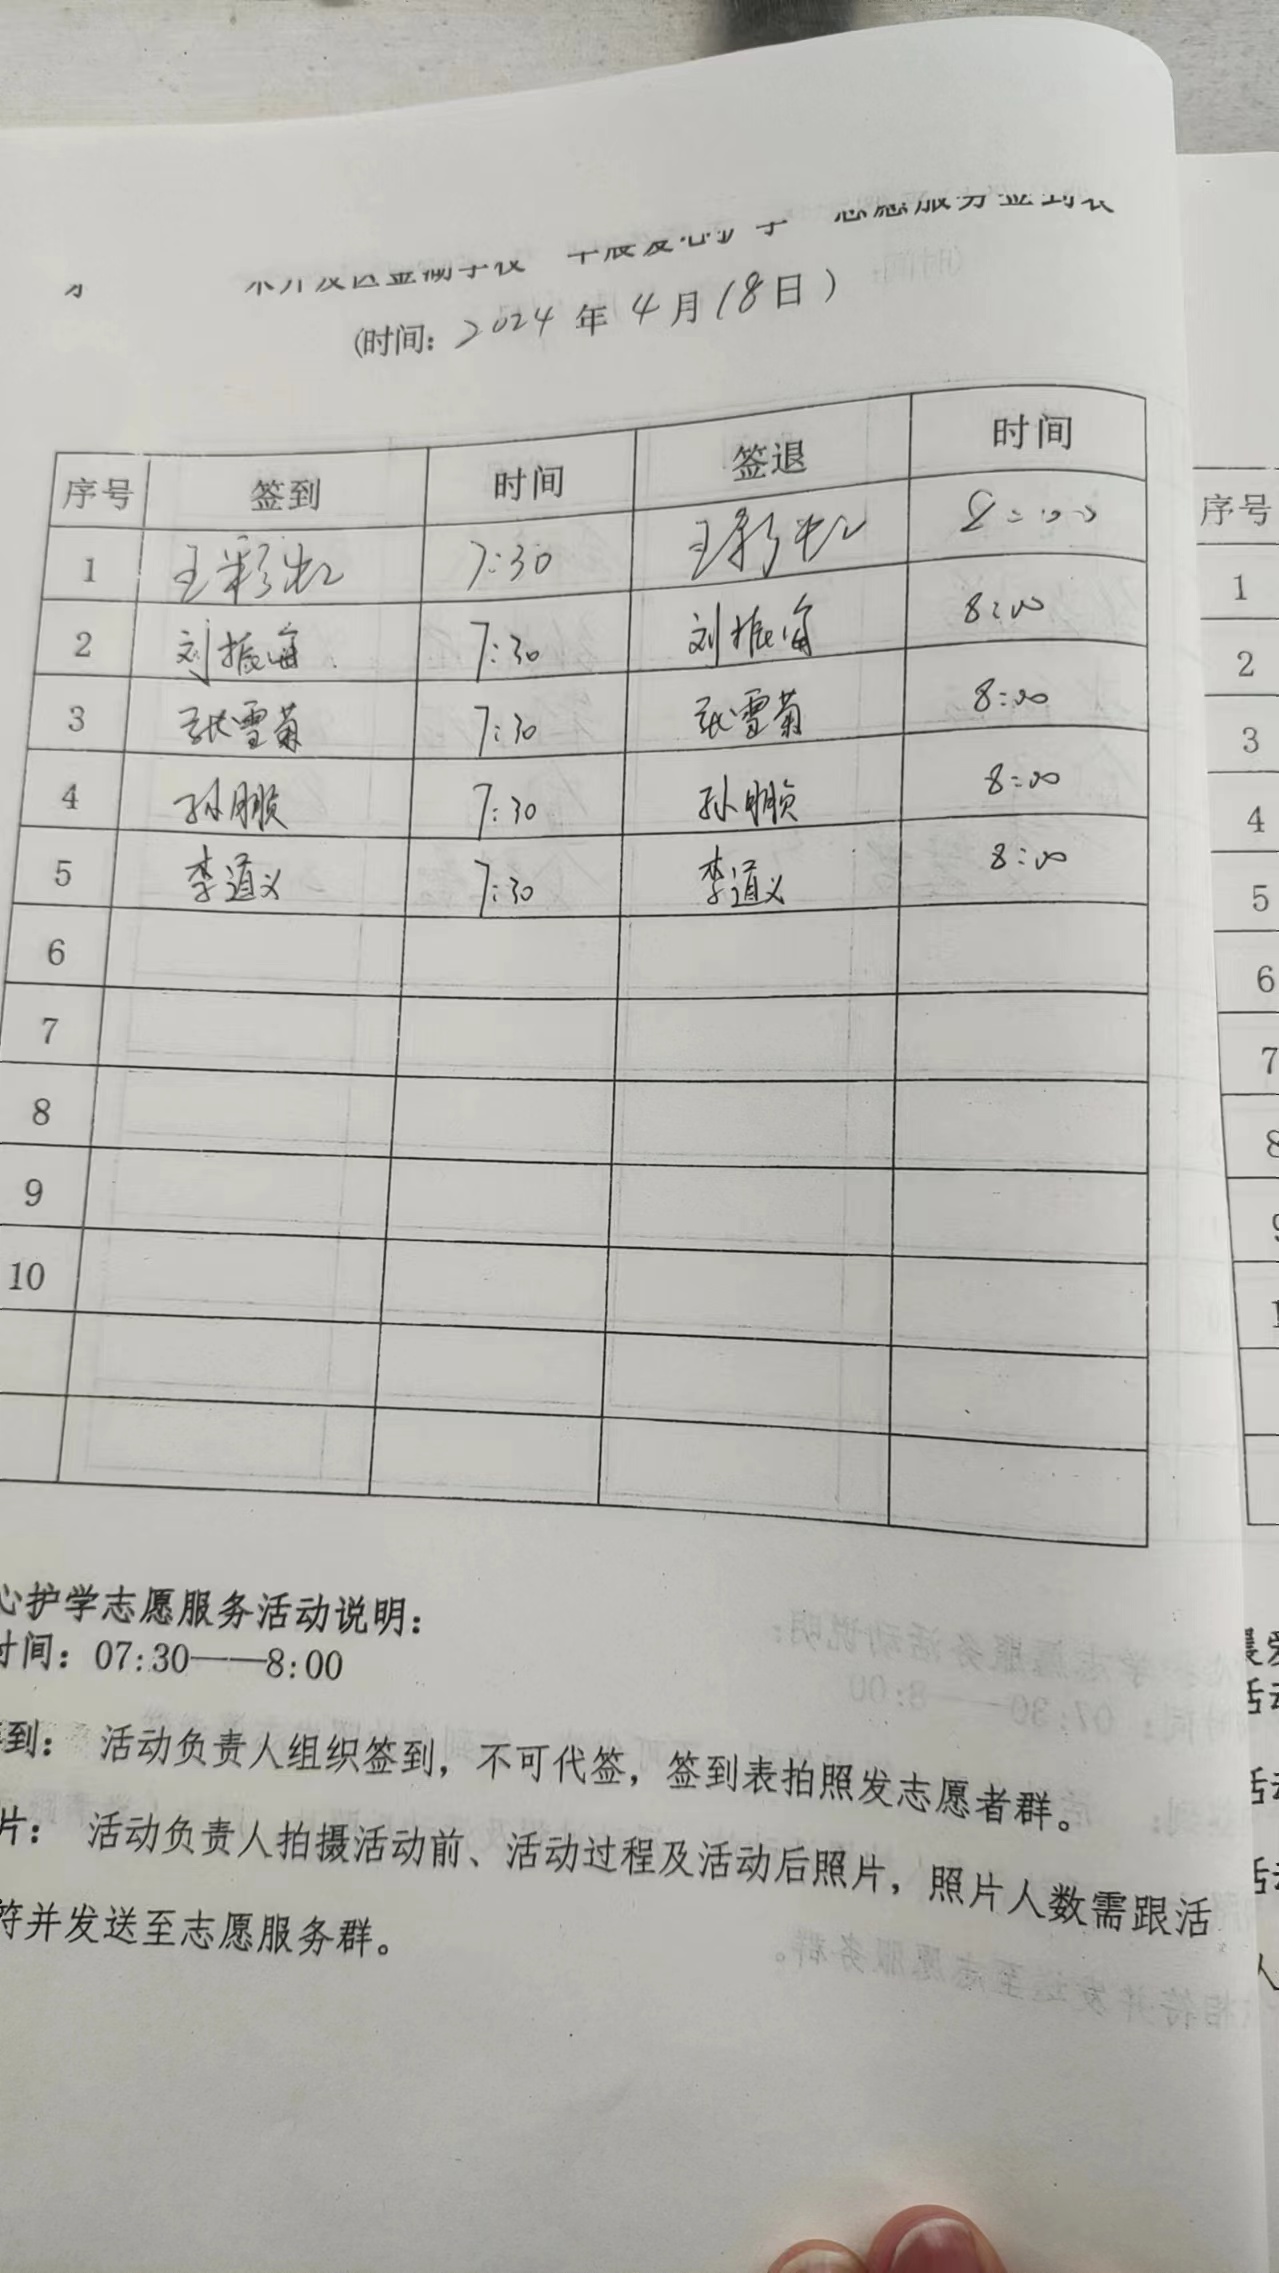 志愿服务签到表
(时间：2024年4月18日)
序号 签到 时间 签退 时间
1 王彩虹 7:30 王彩虹 8:00
2 刘振 7:30 刘振 8:00
3 张雪菊 7:30 张雪菊 8:00
4 孙鹏 7:30 孙鹏 8:00
5 李道义 7:30 李道义 8:00
6
7
8
9
10
心护学志愿服务活动说明：
时间：07:30——8:00
到： 活动负责人组织签到，不可代签，签到表拍照发志愿者群。
片： 活动负责人拍摄活动前、活动过程及活动后照片，照片人数需跟活
符并发送至志愿服务群。
序号
1
2
3
4
5
6
7
8